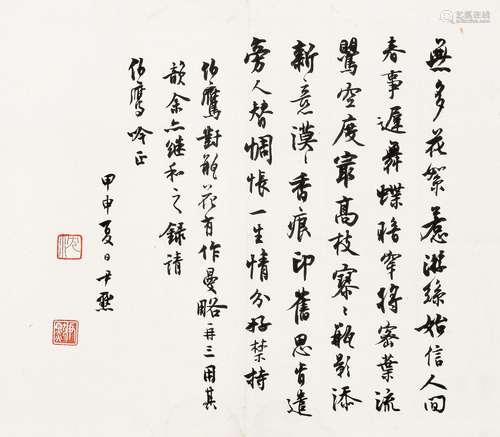 無多花絮惹游絲始信人間
春事遲舞蝶暗穿將密葉流
鶯空度最高枝寥〻瓶影添
新意漠〻香痕印舊思肯遣
旁人替惆悵一生情分好禁持
伯鷹對瓶花有作曼略再三用其
韻余亦继和之録請
伯鷹吟正
甲申夏日尹默